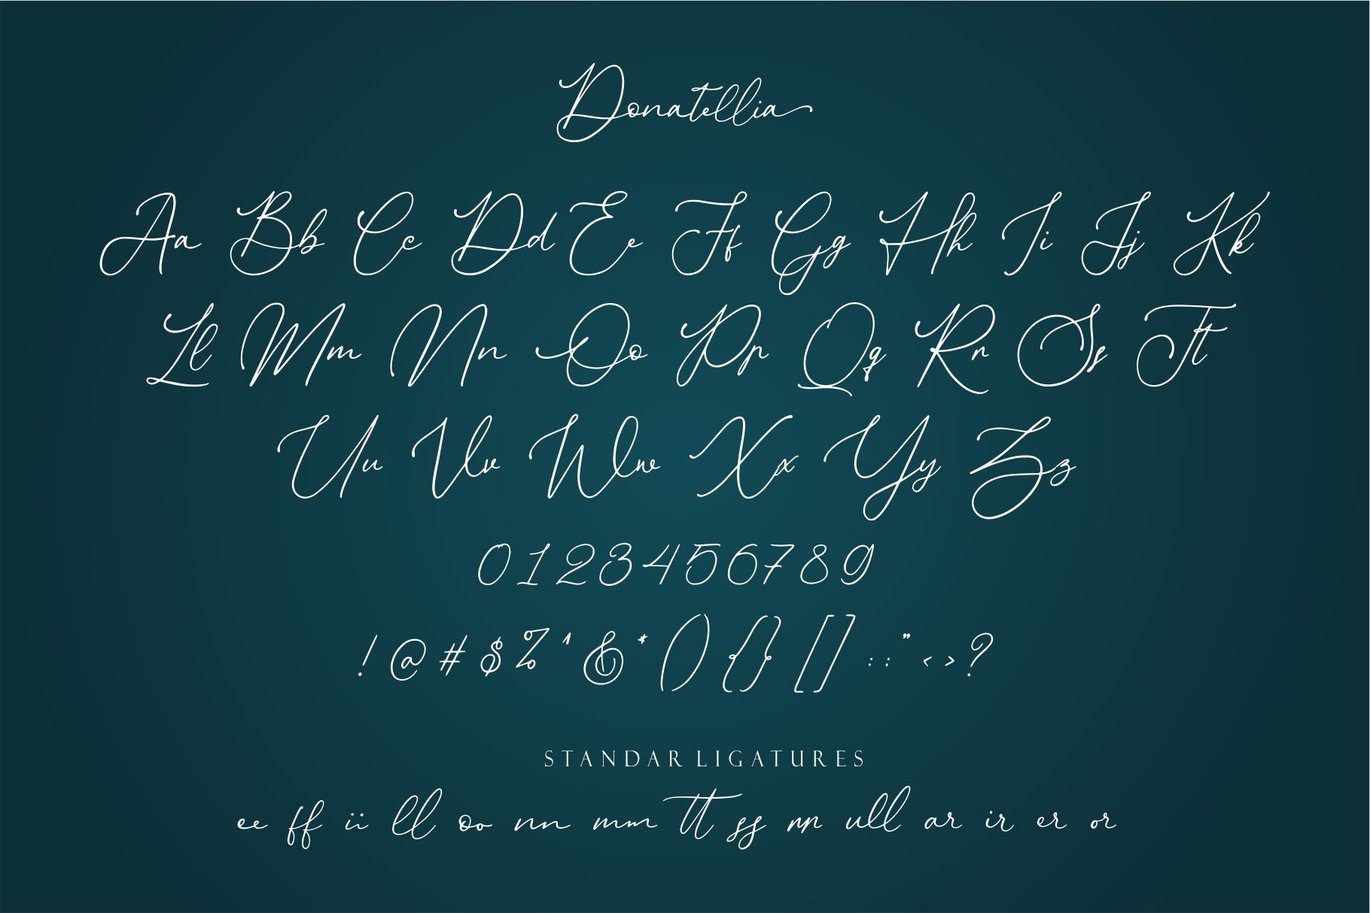 Donatellia
Aa Bb Cc Dd Ee Ff Gg Hh Ii Jj Kk
Ll Mm Nn Oo Pp Qq Rr Ss Tt
Uu Vv Ww Xx Yy Zz
0123456789
! @ # $ % ^ & * () {} [] : : " < > ?
STANDAR LIGATURES
ee ff ii ll oo nn mm tt ss rr ull ar ir er or